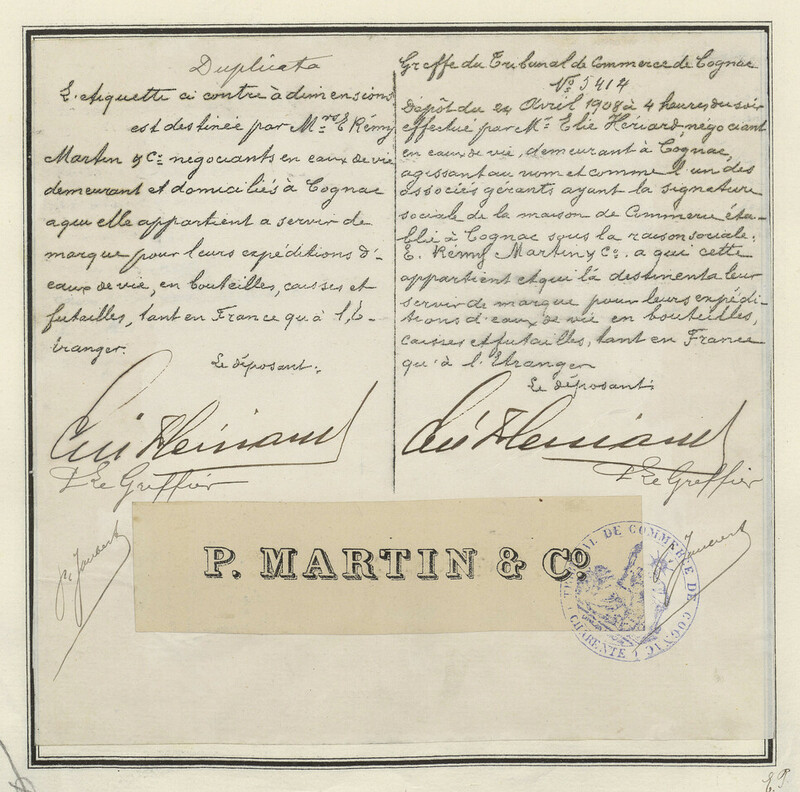 Duplicata
L'etiquette ci contre à dimensions
est destinée par Mrs E Rémy
Martin & Co négociants en eaux de vie
demeurant et domiciliés à Cognac
a qui elle appartient a servir de
marque pour leurs expéditions d'
eaux de vie, en bouteilles, caisses et
futailles, tant en France qu'à l'É-
tranger.
Le déposant:
Le Greffier
Greffe du Tribunal de Commerce de Cognac
No 5414
Dépôt du 24 Avril 1908 à 4 heures du soir
effectué par Mr Elie Hériard, négociant
en eaux de vie, demeurant à Cognac,
agissant au nom et comme l'un des
associés gérants ayant la signature
sociale de la maison de Commerce éta-
blie à Cognac sous la raison sociale:
E. Rémy Martin & Co. a qui cette
appartient et qui la destine à leur
servir de marque pour leurs expédi-
tions d'eaux de vie en bouteilles,
caisses et futailles, tant en France
qu'à l'Etranger
Le déposant:
Le Greffier
P. MARTIN & Co.
TRIBUNAL DE COMMERCE DE COGNAC
CHARENTE
E.P.